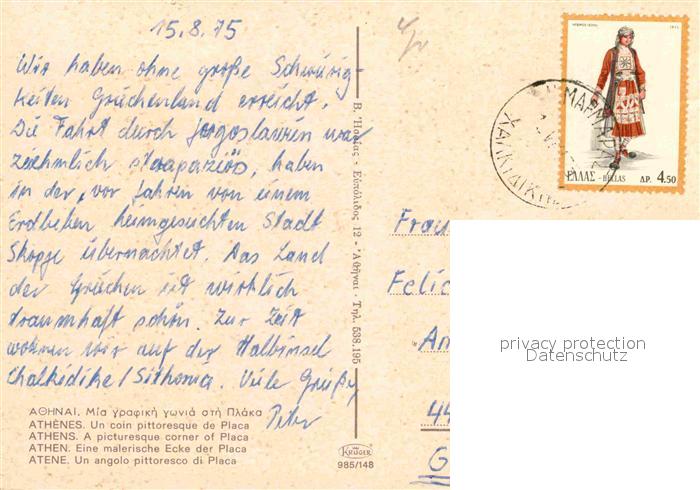 15.8.75
Wir haben ohne große Schwierig-
keiten Griechenland erreicht.
Die Fahrt durch Jugoslawien war
ziehmlich strapaziös, haben
in der, vor Jahren von einem
Erdbeben heimgesuchten Stadt
Skopje übernachtet. Das Land
der Griechen ist wirklich
traumhaft schön. Zur Zeit
wohnen wir auf der Halbinsel
Chalkidike/Sithonia. Viele Grüße,
Peter
ΑΘΗΝΑΙ. Μία γραφική γωνιά στή Πλάκα
ATHÈNES. Un coin pittoresque de Placa
ATHENS. A picturesque corner of Placa
ATHEN. Eine malerische Ecke der Placa
ATENE. Un angolo pittoresco di Placa
KRÜGER
985/148
Εὐπόλιδος 12 - Ἀθῆναι - Τηλ. 538.195
ΕΛΛΑΣ - HELLAS ΔΡ. 4.50
Frau
Felic
An
44
G
privacy protection
Datenschutz